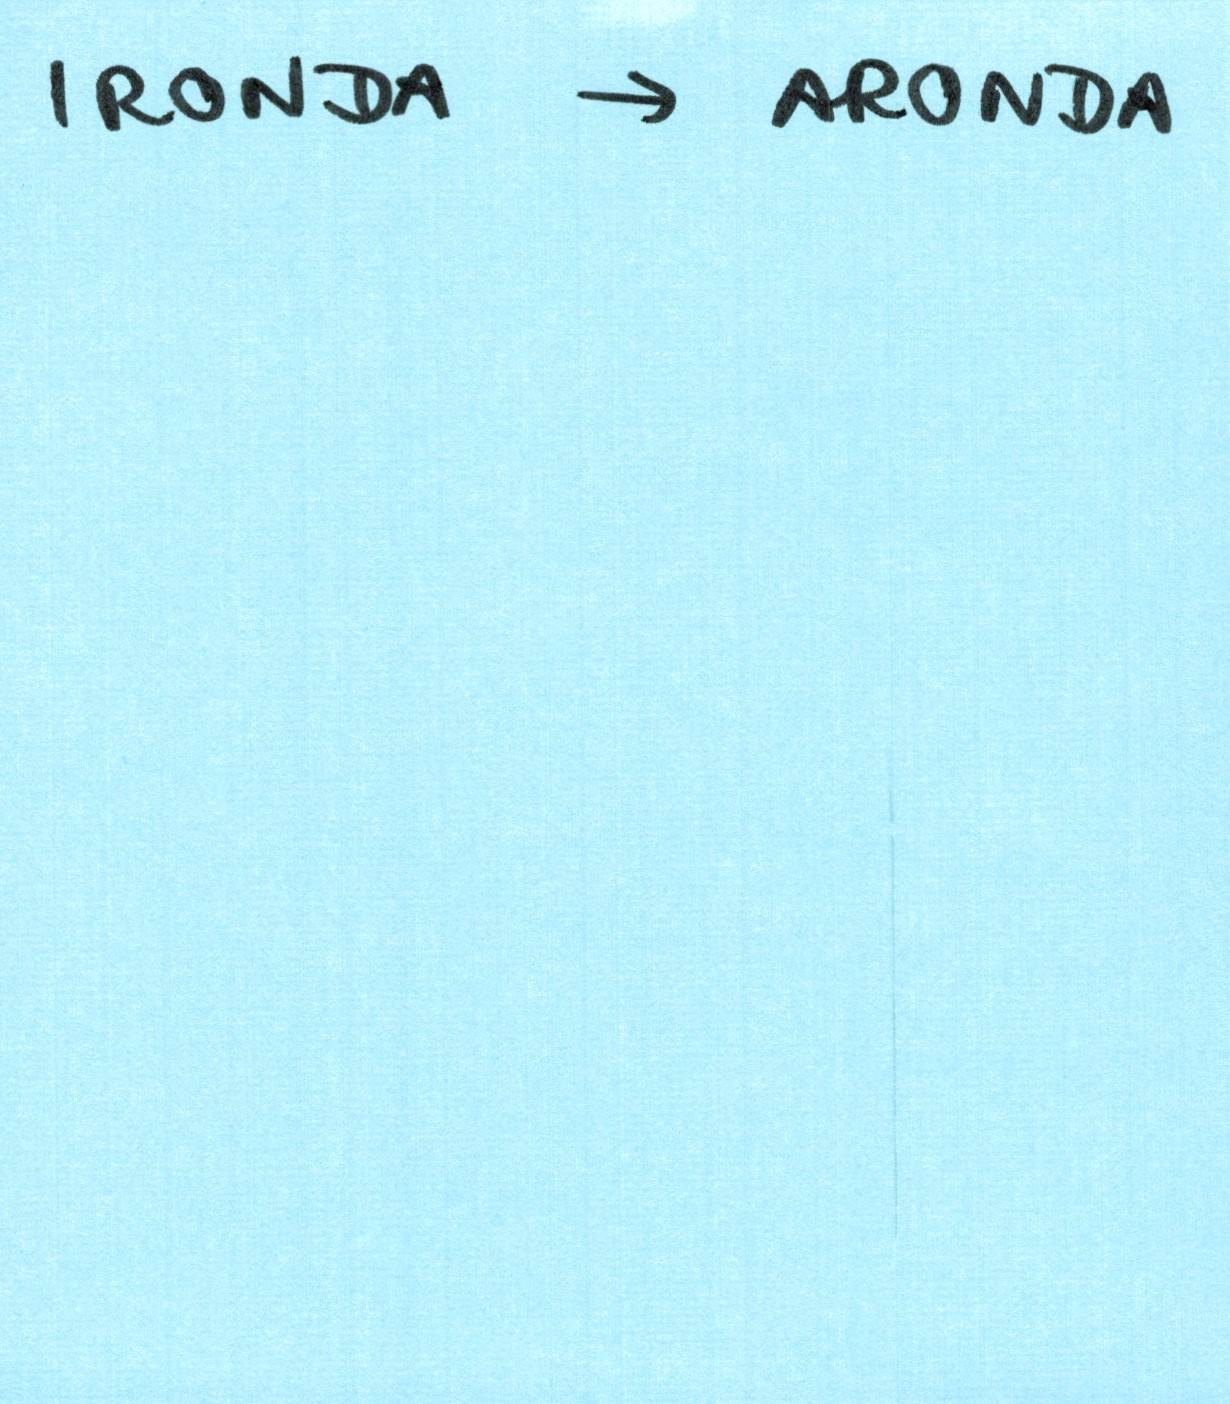 IRONDA → ARONDA